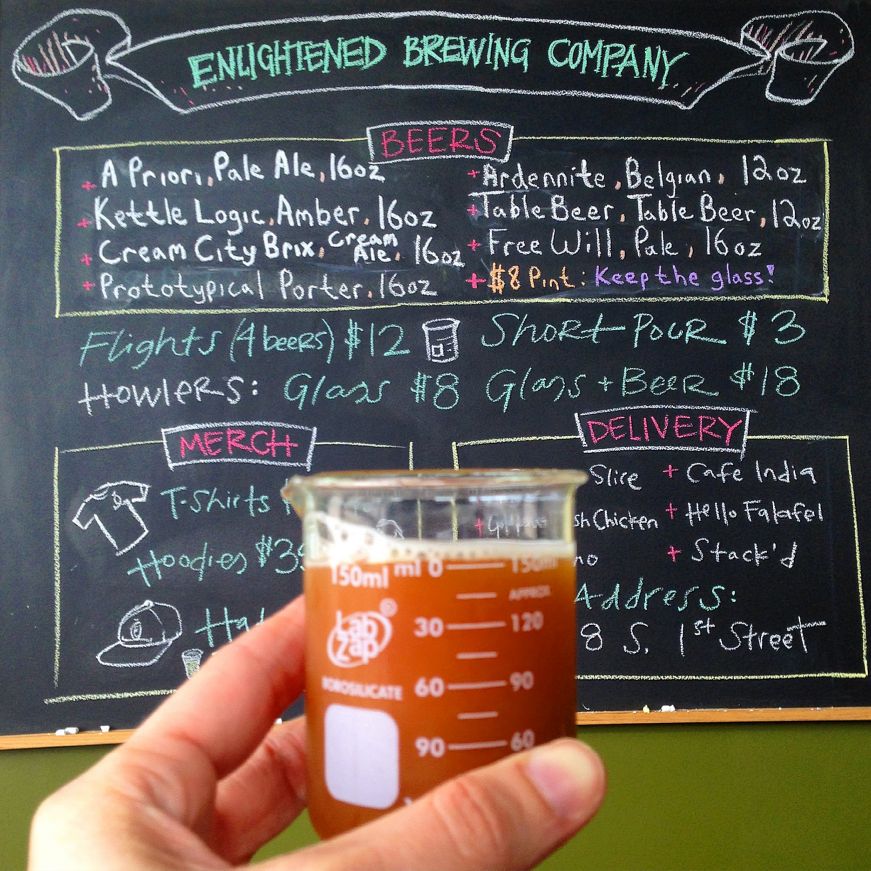 ENLIGHTENED BREWING COMPANY
BEERS
+ A Priori, Pale Ale, 16oz
+ Kettle Logic, Amber, 16oz
+ Cream City Brix, Cream Ale, 16oz
+ Prototypical Porter, 16oz
+ Ardennite, Belgian, 12oz
+ Table Beer, Table Beer, 12oz
+ Free Will, Pale, 16oz
+ $8 Pint: Keep the glass!
Flights (4 beers) $12
Short Pour $3
Howlers: Glass $8 Glass + Beer $18
MERCH
T-Shirts
Hoodies
DELIVERY
Slice
Chicken
+ Cafe India
+ Hello Falafel
+ Stack'd
Address:
8 S. 1st Street
150ml ml 0 150ml
APPROX
Lab Zap ®
30 120
BOROSILICATE
60 90
90 60